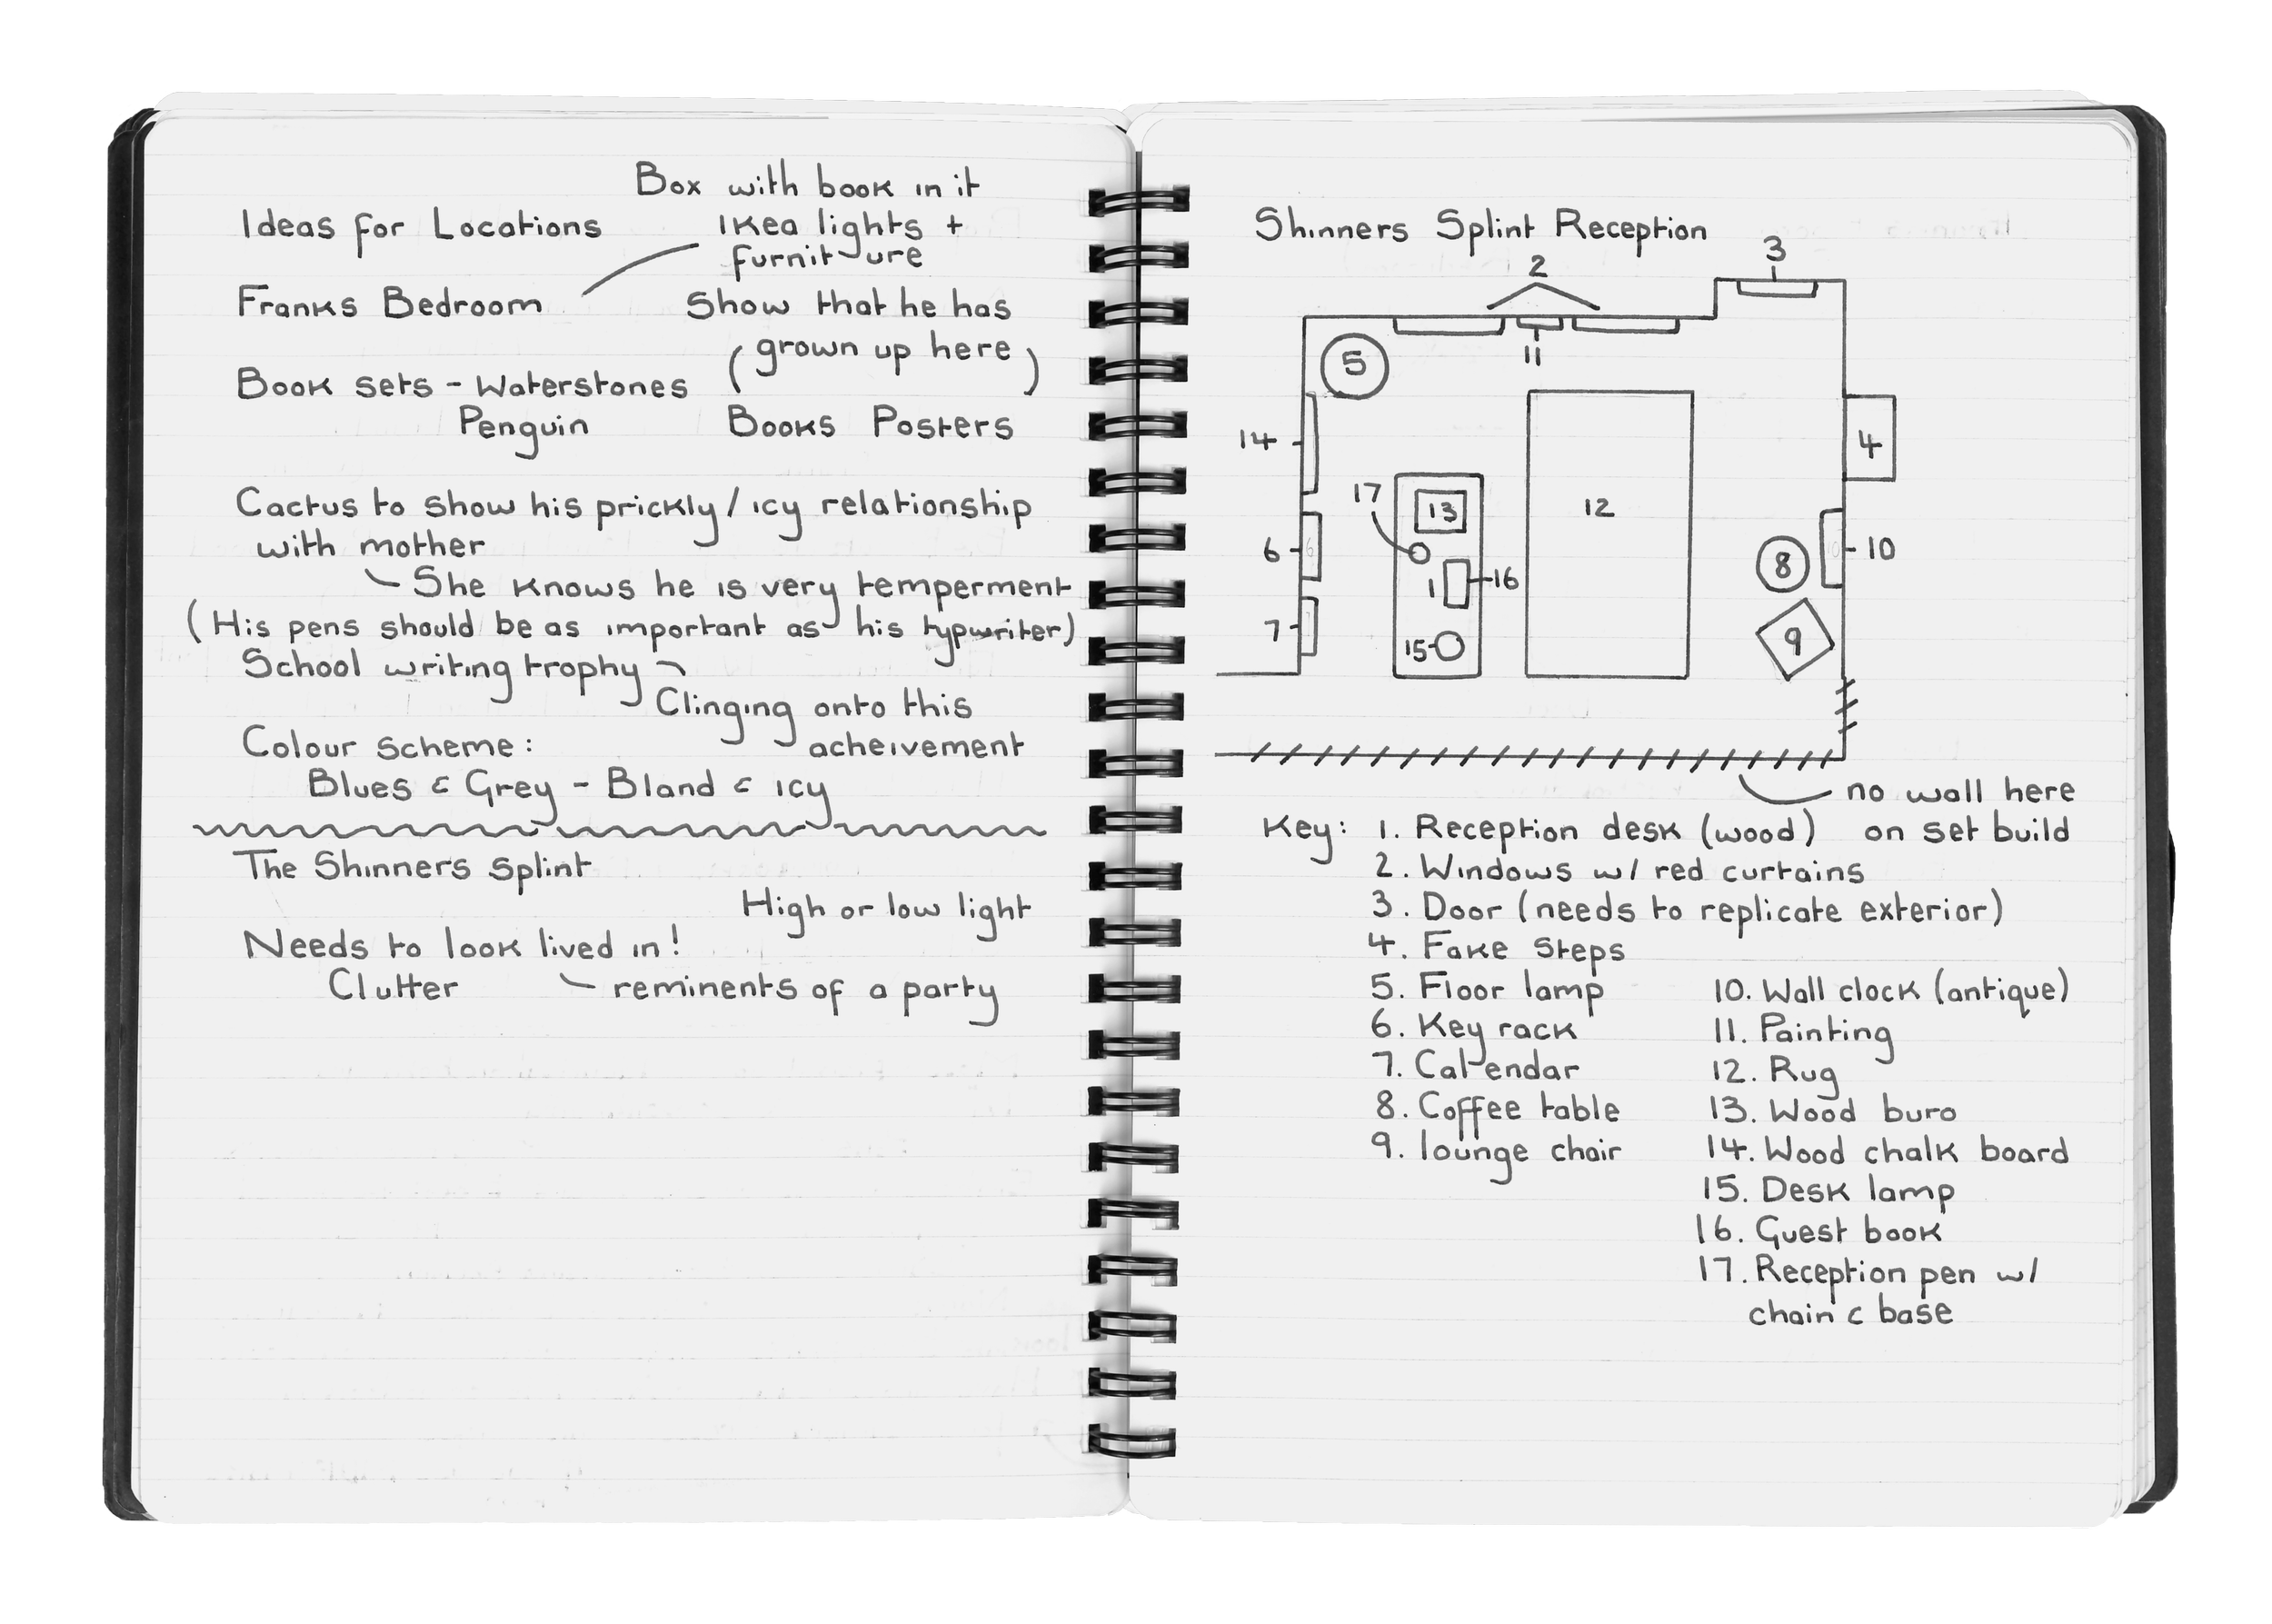 Box with book in it
Ideas for Locations
Ikea lights +
furniture
Franks Bedroom
Show that he has
(grown up here)
Book sets - Waterstones
Penguin
Books Posters
Cactus to show his prickly / icy relationship
with mother
She knows he is very temperment
(His pens should be as important as his typwriter)
School writing trophy
Clinging onto this
acheivement
Colour scheme:
Blues & Grey - Bland & icy
The Shinners Splint
High or low light
Needs to look lived in!
Clutter
reminents of a party
Shinners Splint Reception
3
2
11
5
14
4
17
13
12
6
6
10
8
1
16
7
9
15
no wall here
on set build
Key: 1. Reception desk (wood)
2. Windows w/ red curtains
3. Door (needs to replicate exterior)
4. Fake steps
5. Floor lamp
6. Key rack
7. Calendar
8. Coffee table
9. lounge chair
10. Wall clock (antique)
11. Painting
12. Rug
13. Wood buro
14. Wood chalk board
15. Desk lamp
16. Guest book
17. Reception pen w/
chain & base